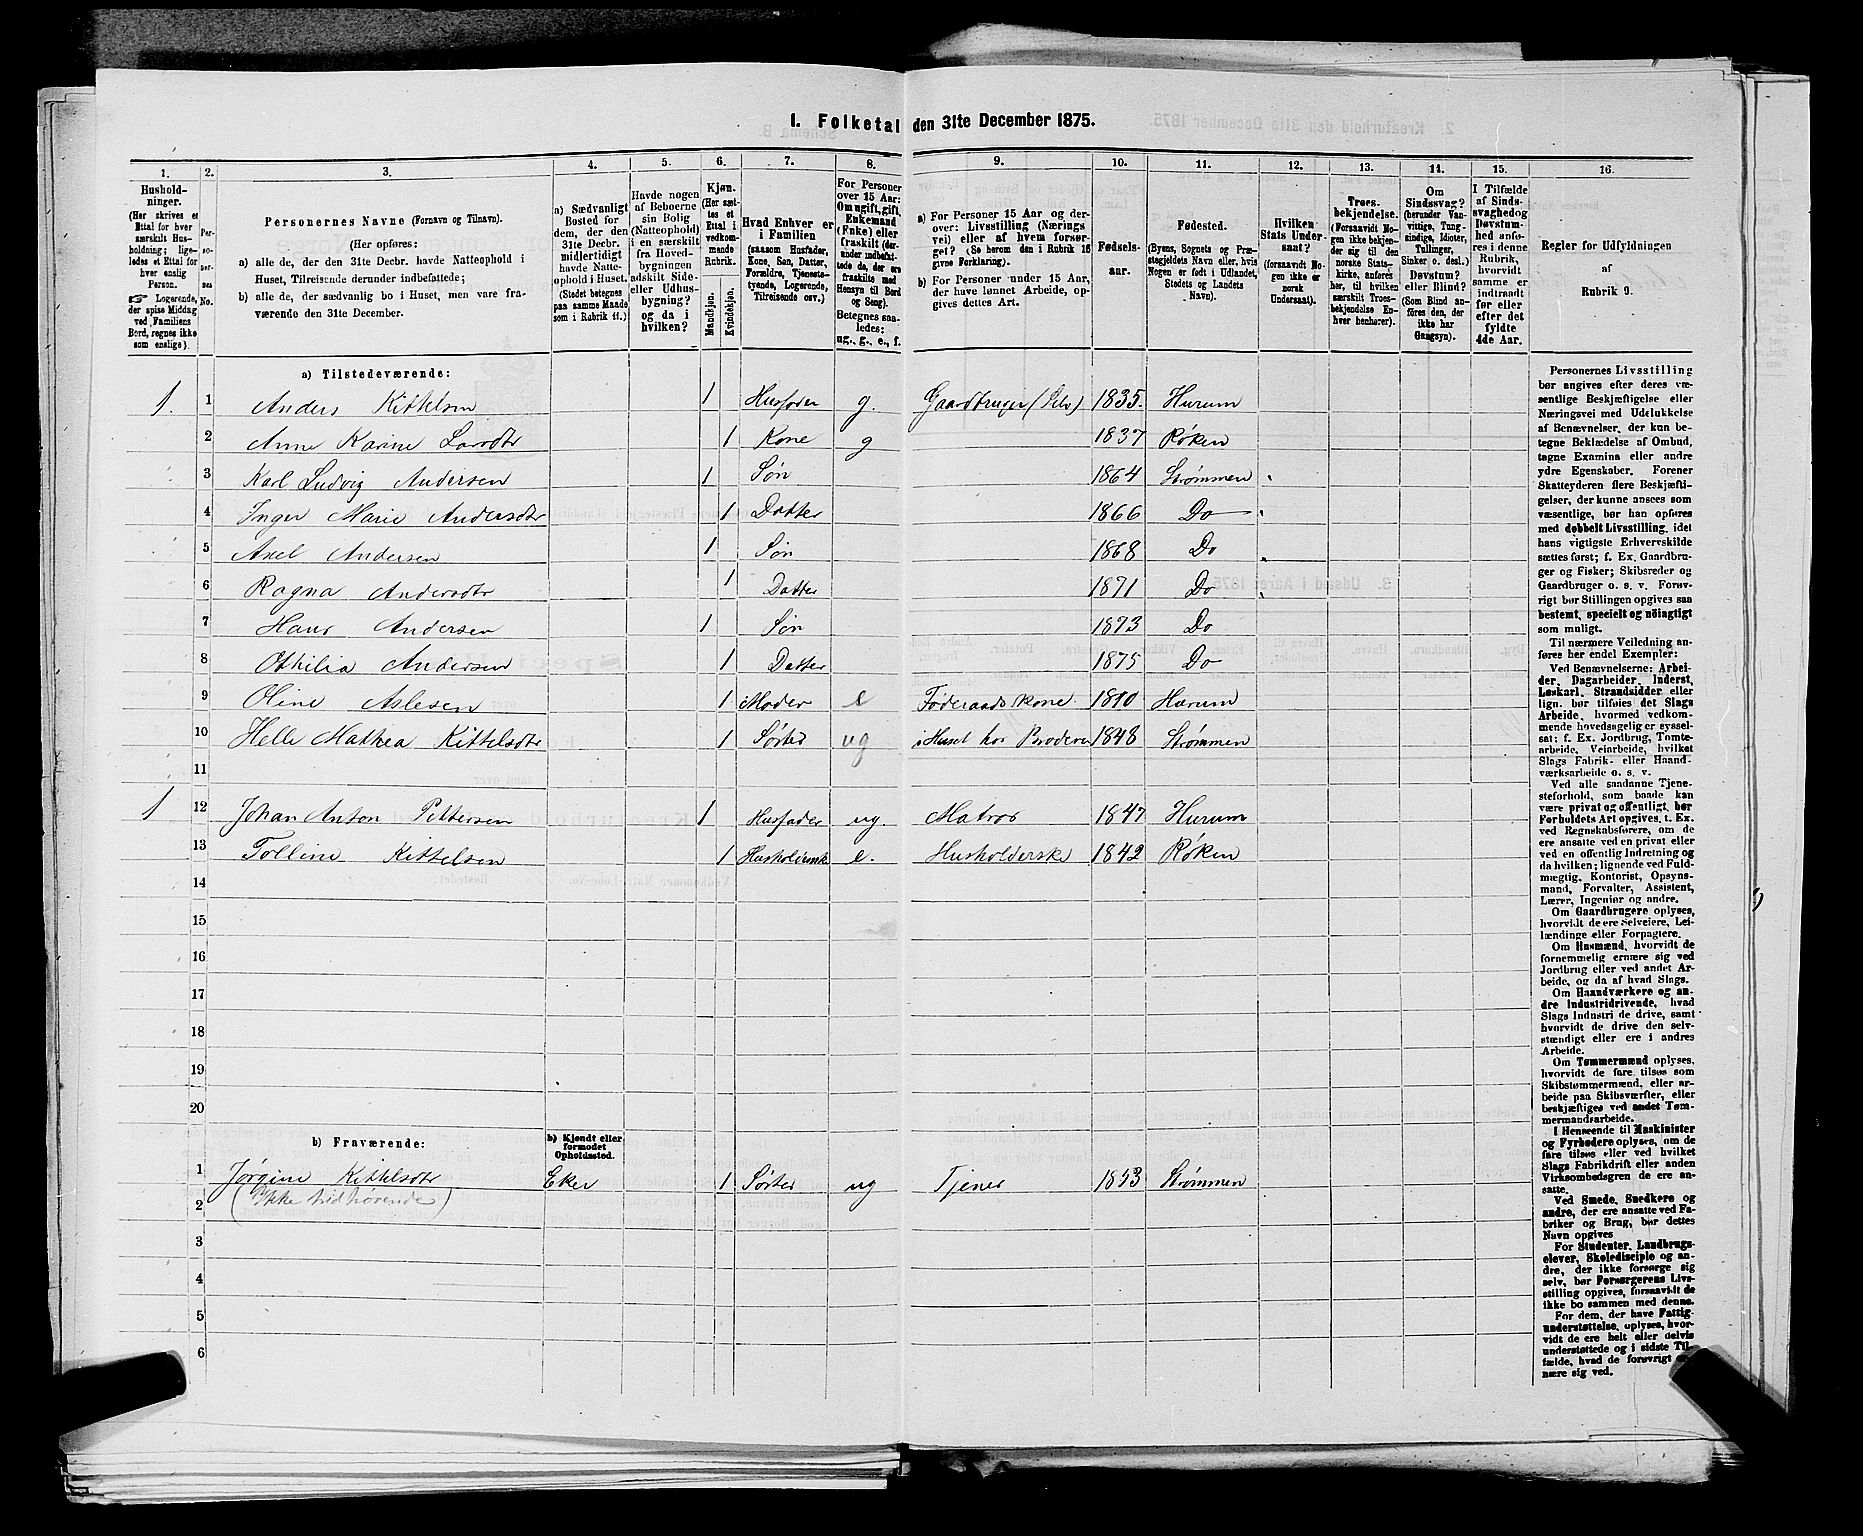 I. Folketal den 31te December 1875.
1.
2.
3.
4.
5.
6.
7.
8.
9.
10.
11.
12.
13.
14.
15.
16.
Husholdninger.
(Her skrives et Ettal for hver særskilt Husholdning; ligeledes et Ettal for hver enslig Person.
Logerende, der spise Middag ved Familiens Bord, regnes ikke som enslige).
Personernes No.
Personernes Navne (Fornavn og Tilnavn).
(Her opføres:
a) alle de, der den 31te Decbr. havde Natteophold i Huset, Tilreisende derunder indbefattede;
b) alle de, der sædvanlig bo i Huset, men vare fraværende den 31te December.
a) Sædvanligt Bosted for dem, der den 31te Decbr. midlertidigt havde Natteophold i Huset.
(Stedet betegnes paa samme Maade som i Rubrik 11.)
Havde nogen af Beboerne sin Bolig (Natteophold) i en særskilt fra Hovedbygningen adskilt Side- eller Udhusbygning? og da i hvilken?
Kjøn.
(Her sættes et Ettal i vedkommende Rubrik.
Mandkjøn.
Kvindekjøn.
Hvad Enhver er i Familien
(saasom Husfader, Kone, Søn, Datter, Forældre, Tjenestetyende, Logerende, Tilreisende osv.)
For Personer over 15 Aar: Om ugift, gift, Enkemand (Enke) eller fraskilt (derunder indbefattede de, der ere fraskilte med Hensyn til Bord og Seng).
Betegnes saaledes: ug., g., e., f.
a) For Personer 15 Aar og derover: Livsstilling (Næringsvei) eller af hvem forsørget? (Se herom den i Rubrik 16 givne Forklaring).
b) For Personer under 15 Aar, der have lønnet Arbeide, opgives dettes Art.
Fødselsaar.
Fødested.
(Byens, Sognets og Præstegjeldets Navn eller, hvis Nogen er født i Udlandet, Stedets og Landets Navn).
Hvilken Stats Undersaat?
(forsaavidt Nogen ikke er norsk Undersaat).
Troesbekjendelse.
(Forsaavidt Nogen ikke bekjender sig til den norske Statskirke, anføres her, til hvilken særskilt Troesbekjendelse Enhver henhører).
Om Sindssvag? (herunder Vanvittige, Tungsindige, Idioter, Tullinger, Sinker o. desl.) Døvstum? eller Blind?
(Som Blind anføres den, der ikke har Gangsyn).
I Tilfælde af Sindssvaghed og Døvstumhed anføres i denne Rubrik, hvorvidt samme er indtraadt før eller efter det fyldte 4de Aar.
Regler for Udfyldningen af Rubrik 9.
a) Tilstedeværende:
1. 1 Anders Kittelsen 1 Husfader g. Gaardbruger (Selv) 1835. Hurum
2 Anne Karine Larsdtr 1 Kone g 1837 Røken
3 Karl Ludvig Andersen 1 Søn 1864 Strømmen
4 Inger Marie Andersdtr 1 Datter 1866 Do
5 Axel Andersen 1 Søn 1868 Do
6 Ragna Andersdtr 1 Datter 1871 Do
7 Hans Andersen 1 Søn 1873 Do
8 Othilia Andersen 1 Datter 1875 Do
9 Oline Aslesen 1 Moder e Føderaadskone 1810 Hurum
10 Helle Mathea Kittelsdtr 1 Søster ug i Huset hos Broderen 1848 Strømmen
11
1 12 Johan Anton Pettersen 1 Husfader ug. Matros 1847 Hurum
13 Tolline Kittelsen 1 e. Husholderske 1842 Røken
14
15
16
17
18
19
20
b) Fraværende:
b) Kjendt eller formodet Opholdssted.
1 Jørgine Kittelsdtr Eker 1 Søster ug Tjener 1853 Strømmen
2 (Ikke hidhørende)
3
4
5
6
Personernes Livsstilling
bør angives efter deres væ-
sentlige Beskjæftigelse eller
Næringsvei med Udelukkelse
af Benævnelser, der kun be-
tegne Beklædelse af Ombud,
tagne Examina eller andre
ydre Egenskaber. Forener
Skatteyderen flere Beskjæfti-
gelser, der kunne ansees som
væsentlige, bør han opføres
med dobbelt Livsstilling, idet
hans vigtigste Erhvervskilde
sættes først; f. Ex. Gaardbru-
ger og Fisker; Skibsreder og
Gaardbruger o. s. v. Forøv-
rigt bør Stillingen opgives saa
bestemt, specielt og nøiagtigt
som muligt.
Til nærmere Veiledning an-
føres her endel Exempler:
Ved Benævnelserne: Arbei-
der, Dagarbeider, Inderst,
Løskarl, Strandsidder eller
lign. bør tilføies det Slags
Arbeide, hvormed vedkom-
mende hovedsagelig er syssel-
sat; f. Ex. Jordbrug, Tomte-
arbeide, Veiarbeide, hvilket
Slags Fabrik- eller Haand-
værksarbeide o. s. v.
Ved alle saadanne Tjene-
steforhold, som baade kan
være privat og offentligt, bør
Forholdets Art opgives. f. Ex.
ved Regnskabsførere, om de
ere ansatte ved en privat eller
ved en offentlig Indretning og
da hvilken; lignende ved Fuld-
mægtig, Kontorist, Opsyns-
mand, Forvalter, Assistent,
Lærer, Ingeniør og andre.
Om Gaardbrugere oplyses,
hvorvidt de ere Selveiere, Lei-
lændinge eller Forpagtere.
Om Husmænd, hvorvidt de
fornemmelig ernære sig ved
Jordbrug eller ved andet Ar-
beide, og da af hvad Slags.
Om Haandværkere og an-
dre Industridrivende, hvad
Slags Industri de drive, samt
hvorvidt de drive den selv-
stændigt eller ere i andres
Arbeide.
Om Tømmermænd oplyses,
hvorvidt de fare tilsøs som
Skibstømmermænd, eller ar-
beide paa Skibsværfter, eller
beskjæftiges ved andet Tøm-
mermandsarbeide.
I Henseende til Maskinister
og Fyrbødere oplyses, om de
fare tilsøs eller ved hvilket
Slags Fabrikdrift eller anden
Virksombedsgren de ere an-
satte.
Ved Smede, Snedkere og
andre, der ere ansatte ved Fa-
briker og Brug, bør dettes
Navn opgives
For Studenter, Landbrugs-
elever, Skoledisciple og an-
dre, der ikke forsørge sig
selv, bør Forsørgerens Livs-
stilling opgives, forsaavidt de
ikke bo sammen med denne.
For dem, der have Fattig-
understøttelse, oplyses, hvor-
vidt de ere helt eller delvis
understøttede og i sidste Til-
fælde, hvad de forøvrigt er-
nære sig ved.